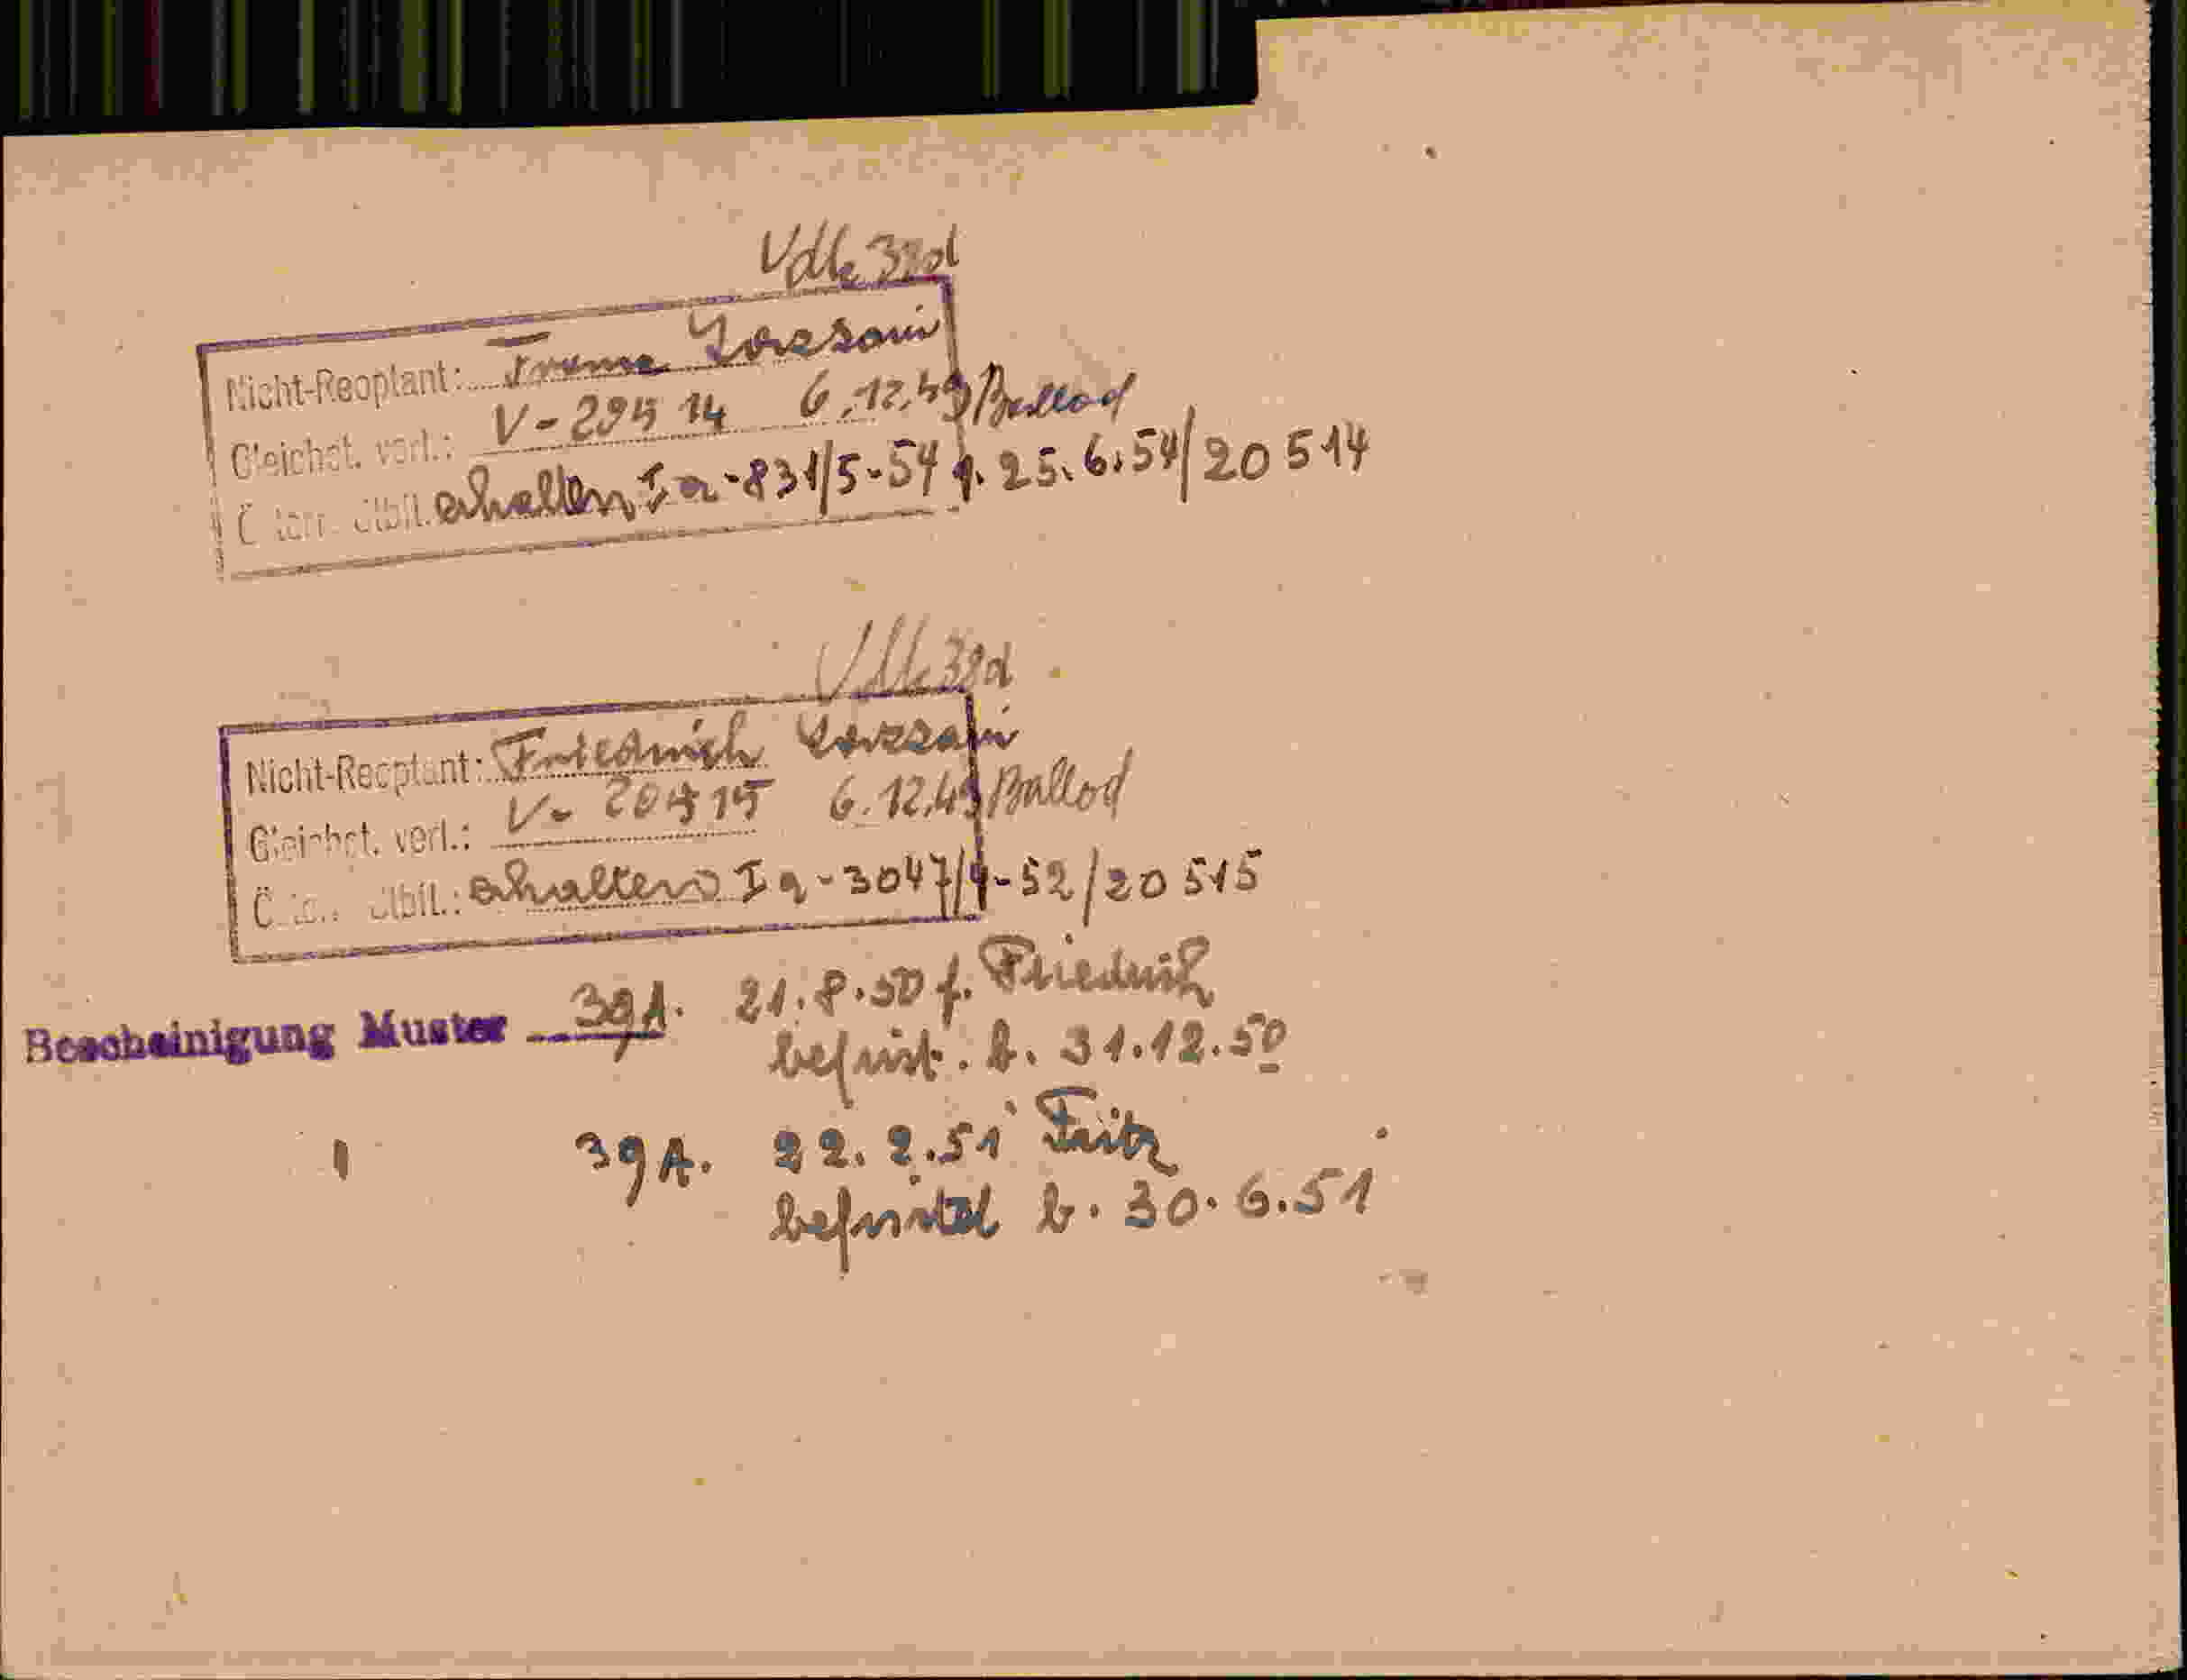 Vdk 39d
Nicht-Reoptant:
Gleichst. verl.: V- 6.12.49 Ballod
erhalten Ia-831/5-54 25.6.54/20514
Vdk 39d
Nicht-Reoptant: Friedrich
Gleichst. verl.: V- 20515 6.12.49 Ballod
erhalten Ia-3047/4-52/20515
Bescheinigung Muster 39A. 21.8.50 f. Friedrich
befrist. b. 31.12.50
39A. 22.2.51 Fritz
befristet b. 30.6.51